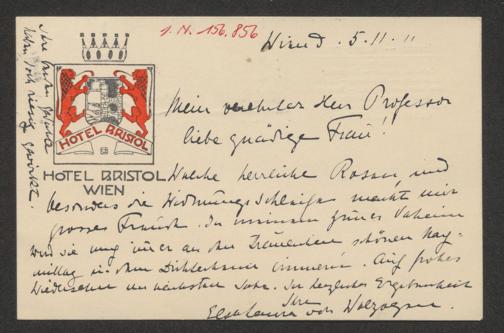 I. N. 156.856
Wien d. 5. 11. 11
HOTEL BRISTOL
HOTEL BRISTOL
WIEN
Mein verehrter Herr Professor
liebe gnädige Frau!
Welche herrliche Rosen, und
besonders die Widmungsschleife macht mir
grosses Freude. In meinem grünen Daheim
wird sie mich immer an den schönen Nach-
mittag in dem Dichterheim erinnern. Auf frohes
Wiedersehen am nächsten In herzlicher Ergebenheit
Ihre
Elsa Laura von Wolzogen.
Ihre
hat mich riesig gefreut.